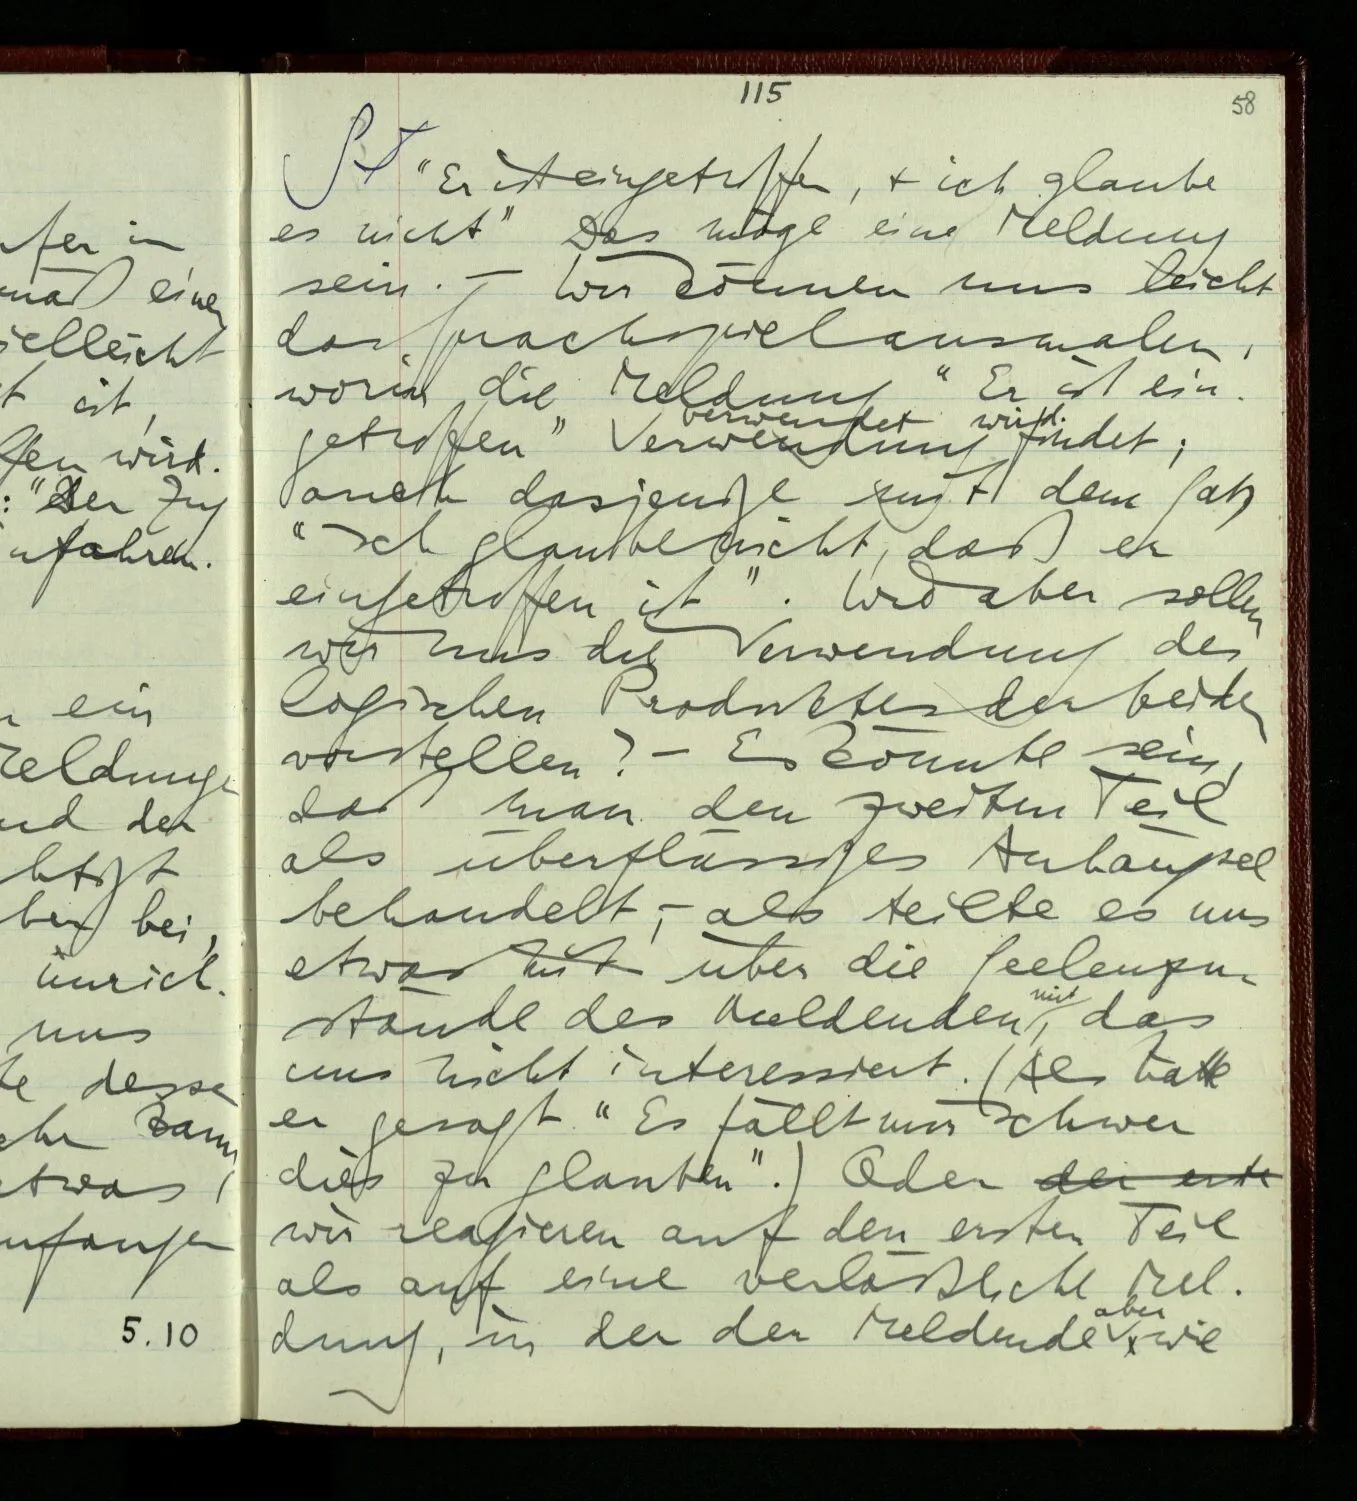 115
58
"Er ist eingetroffen, + ich glaube
es nicht" Das möge eine Meldung
sein. – Wir können uns leicht
das Sprachspiel ausmalen,
worin die Meldung "Er ist ein-
getroffen" Verwendung findet;
verwendet wird.
auch dasjenige mit dem Satz
"Ich glaube nicht, daß er
eingetroffen ist". Wie aber sollen
wir uns die Verwendung des
logischen Produktes der beiden
vorstellen? – Es könnte sein,
daß man den zweiten Teil
als überflüssiges Anhängsel
behandelt, – als teilte es uns
etwas mit über die Seelenzu-
stände des Meldenden, das
mit
uns nicht interessiert. (Als hätte
er gesagt "Es fällt mir schwer
dies zu glauben".) Oder der erste
wir reagieren auf den ersten Teil
als auf eine verläßliche Mel-
dung, in der der Meldende wie
aber
ufer in
einen
vielleicht
t ist,
ffen wird.
: "Der Zug
nfahren.
ein
Meldunge
und der
bei,
uns
te desse
kann
etwas
anfangen
5.10